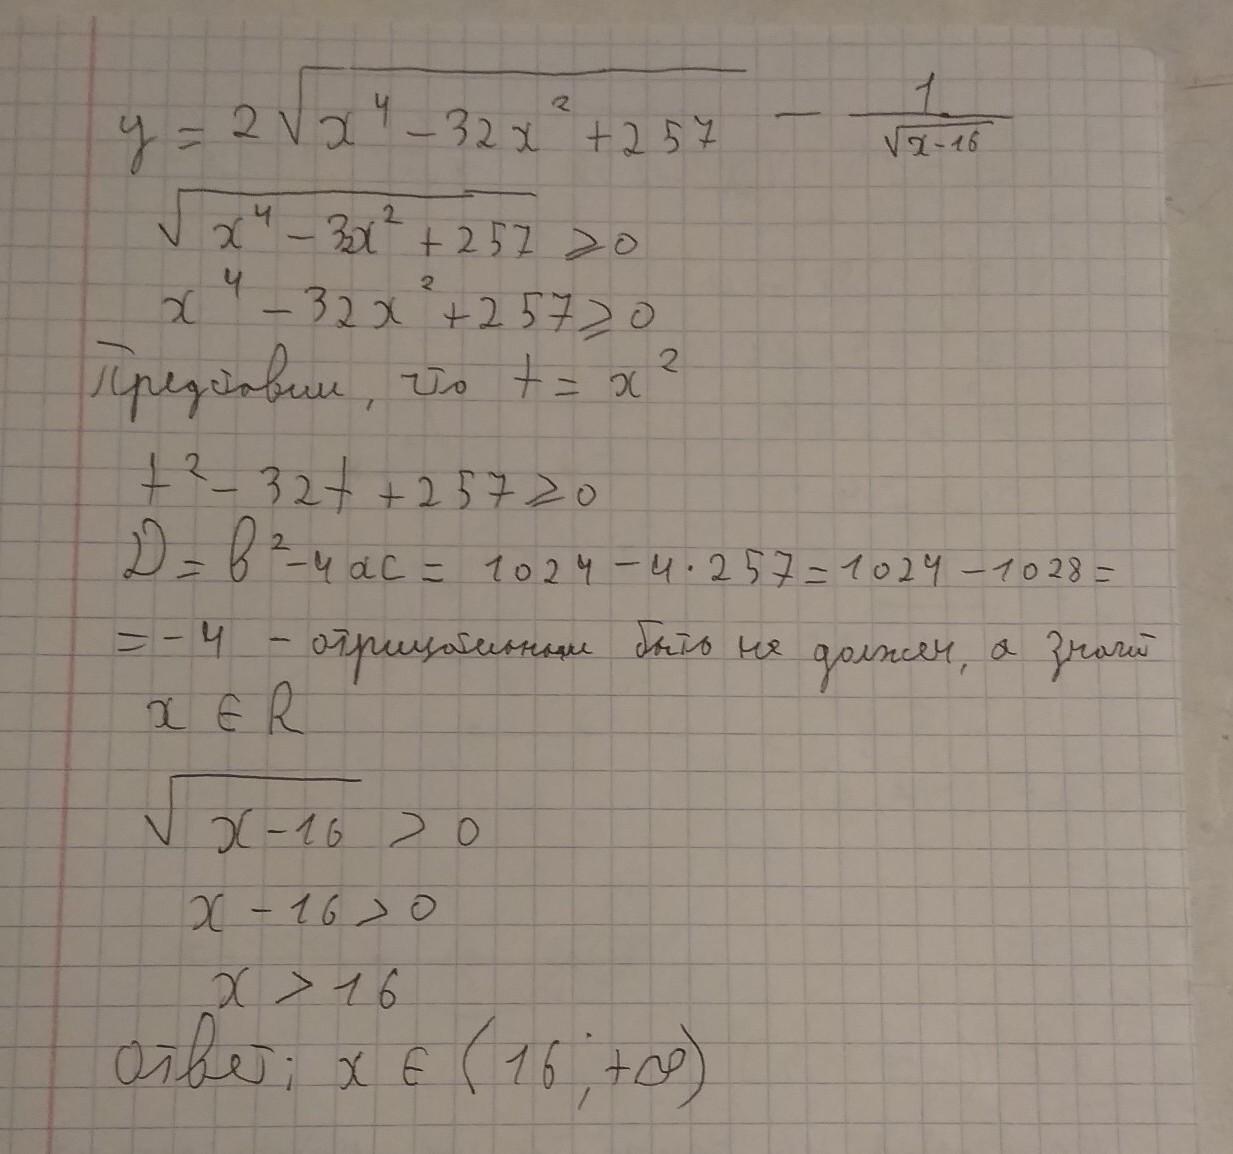 y = 2√(x⁴ - 32x² + 257) - 1/√(x-16)
√(x⁴ - 32x² + 257) ⩾ 0
x⁴ - 32x² + 257 ⩾ 0
Представим, что t = x²
t² - 32t + 257 ⩾ 0
D = b² - 4ac = 1024 - 4·257 = 1024 - 1028 =
= -4 - отрицательным быть не должен, а значит
x ∈ R
√(x-16) > 0
x - 16 > 0
x > 16
Ответ: x ∈ (16; +∞)